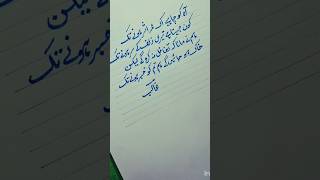 آہ کو چاہیے اک عمر اثر ہونے تک
کون جیتا ہے تری زلف کے سر ہونے تک
ہم نے مانا کہ تغافل نہ کرو گے لیکن
خاک ہو جائیں گے ہم تم کو خبر ہونے تک
غالب